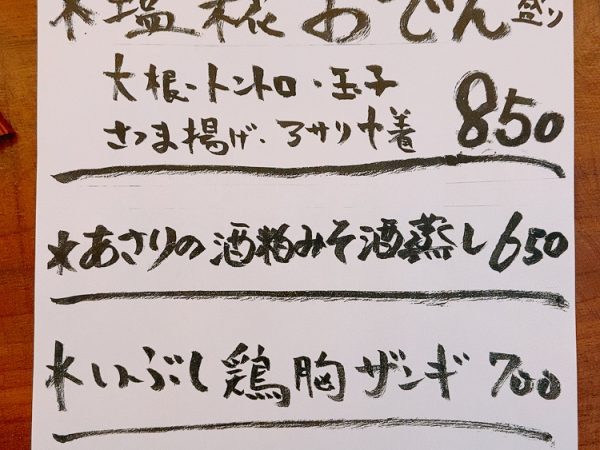 *塩糀おでん盛り
大根・トントロ・玉子
さつま揚げ・アサリ巾着 850
*あさりの酒粕みそ酒蒸し 650
*いぶし鶏胸ザンギ 700